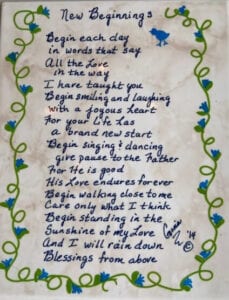 New Beginnings
Begin each day
in words that say
All the Love
in the way
I have taught you
Begin smiling and laughing
with a joyous heart
For your life has
a brand new start
Begin singing & dancing
give pause to the Father
For He is good
His Love endures forever
Begin walking close to me
Care only what I think
Begin standing in the
Sunshine of my Love
And I will rain down
Blessings from above
'14
©